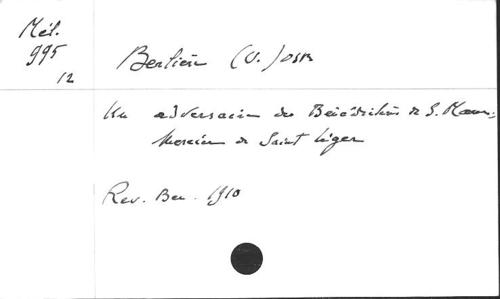 Mél.
995
12
Berlière (U.) OSB
Un adversaire des Bénédictins de S. Maur:
Mercier de Saint Léger
Rev. Ben. 1910